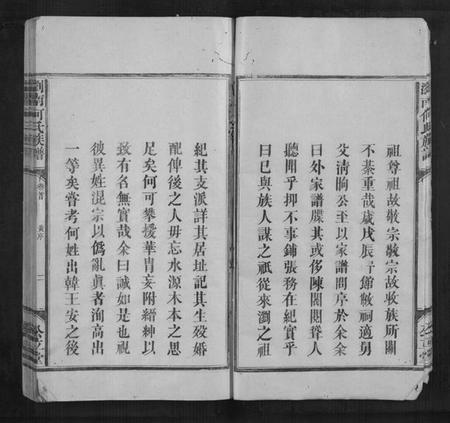 祖尊祖故敬宗敬宗故收族所關
不綦重哉歲戊辰予館敝祠適男
父清晌公至以家譜問序於余余
曰外家譜嚴其或侈陳閥閱聳人
聽聞乎抑不事鋪張務在紀實乎
曰已與族人謀之祇從來瀏之祖
紀其支派詳其居址記其生歿婚
配俾後之人毋忘水源木本之思
足矣何可攀援華胄妄附縉紳以
致有名無實哉余曰誠如是也視
彼異姓混宗以僞亂眞者洵高出
一等矣嘗考何姓出韓王安之後
瀏南何氏族譜
卷首
黃序
二